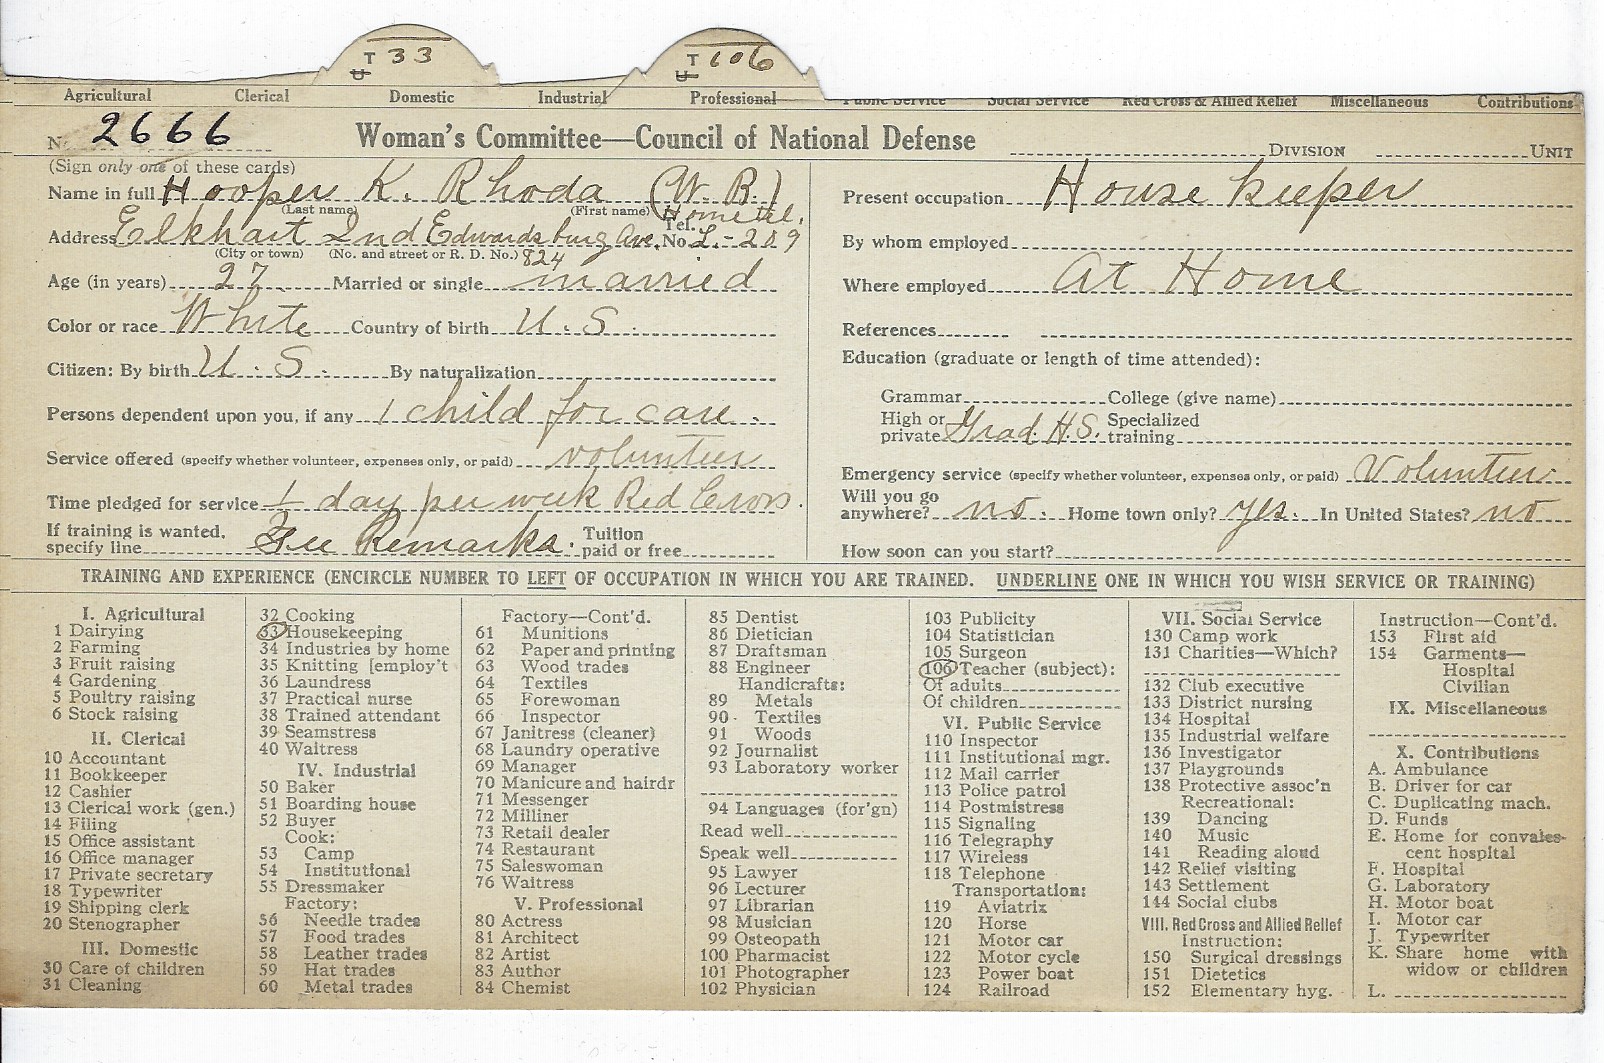 T 33
U
T 106
U
Agricultural Clerical Domestic Industrial Professional Public Service Social Service Red Cross & Allied Relief Miscellaneous Contributions
No. 2666 Woman's Committee—Council of National Defense DIVISION UNIT
(Sign only one of these cards)
Name in full Hooper K. Rhoda (W. R.)
(Last name) (First name) Home tel.
Address Elkhart Ind Edwardsburg Ave. Tel. No. L.-289
(City or town) (No. and street or R. D. No.) 824
Age (in years) 27 Married or single married
Color or race White Country of birth U. S.
Citizen: By birth U. S. By naturalization
Persons dependent upon you, if any 1 child for care.
Service offered (specify whether volunteer, expenses only, or paid) volunteer
Time pledged for service 1 day per week Red Cross.
If training is wanted, specify line See Remarks. Tuition paid or free
Present occupation House keeper
By whom employed
Where employed At Home
References
Education (graduate or length of time attended):
Grammar College (give name)
High or private Grad. H.S. Specialized training
Emergency service (specify whether volunteer, expenses only, or paid) Volunteer
Will you go anywhere? no. Home town only? yes. In United States? no
How soon can you start?
TRAINING AND EXPERIENCE (ENCIRCLE NUMBER TO LEFT OF OCCUPATION IN WHICH YOU ARE TRAINED. UNDERLINE ONE IN WHICH YOU WISH SERVICE OR TRAINING)
I. Agricultural
1 Dairying
2 Farming
3 Fruit raising
4 Gardening
5 Poultry raising
6 Stock raising
II. Clerical
10 Accountant
11 Bookkeeper
12 Cashier
13 Clerical work (gen.)
14 Filing
15 Office assistant
16 Office manager
17 Private secretary
18 Typewriter
19 Shipping clerk
20 Stenographer
III. Domestic
30 Care of children
31 Cleaning
32 Cooking
33 Housekeeping
34 Industries by home
35 Knitting [employ't
36 Laundress
37 Practical nurse
38 Trained attendant
39 Seamstress
40 Waitress
IV. Industrial
50 Baker
51 Boarding house
52 Buyer
Cook:
53 Camp
54 Institutional
55 Dressmaker
Factory:
56 Needle trades
57 Food trades
58 Leather trades
59 Hat trades
60 Metal trades
Factory—Cont'd.
61 Munitions
62 Paper and printing
63 Wood trades
64 Textiles
65 Forewoman
66 Inspector
67 Janitress (cleaner)
68 Laundry operative
69 Manager
70 Manicure and hairdr
71 Messenger
72 Milliner
73 Retail dealer
74 Restaurant
75 Saleswoman
76 Waitress
V. Professional
80 Actress
81 Architect
82 Artist
83 Author
84 Chemist
85 Dentist
86 Dietician
87 Draftsman
88 Engineer
Handicrafts:
89 Metals
90 Textiles
91 Woods
92 Journalist
93 Laboratory worker
94 Languages (for'gn)
Read well
Speak well
95 Lawyer
96 Lecturer
97 Librarian
98 Musician
99 Osteopath
100 Pharmacist
101 Photographer
102 Physician
103 Publicity
104 Statistician
105 Surgeon
106 Teacher (subject):
Of adults
Of children
VI. Public Service
110 Inspector
111 Institutional mgr.
112 Mail carrier
113 Police patrol
114 Postmistress
115 Signaling
116 Telegraphy
117 Wireless
118 Telephone
Transportation:
119 Aviatrix
120 Horse
121 Motor car
122 Motor cycle
123 Power boat
124 Railroad
VII. Social Service
130 Camp work
131 Charities—Which?
132 Club executive
133 District nursing
134 Hospital
135 Industrial welfare
136 Investigator
137 Playgrounds
138 Protective assoc'n
Recreational:
139 Dancing
140 Music
141 Reading aloud
142 Relief visiting
143 Settlement
144 Social clubs
VIII. Red Cross and Allied Relief
Instruction:
150 Surgical dressings
151 Dietetics
152 Elementary hyg.
Instruction—Cont'd.
153 First aid
154 Garments—
Hospital
Civilian
IX. Miscellaneous
X. Contributions
A. Ambulance
B. Driver for car
C. Duplicating mach.
D. Funds
E. Home for convales-
cent hospital
F. Hospital
G. Laboratory
H. Motor boat
I. Motor car
J. Typewriter
K. Share home with
widow or children
L.